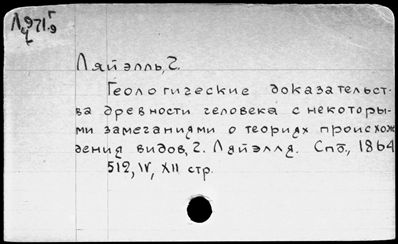 Ляйэлль, Г.
Геологические доказательст-
ва древности человека с некоторы-
ми замечаниями о теориях происхож
дения видов, Г. Ляйэлля. Спб., 1864
512, IV, XII стр.